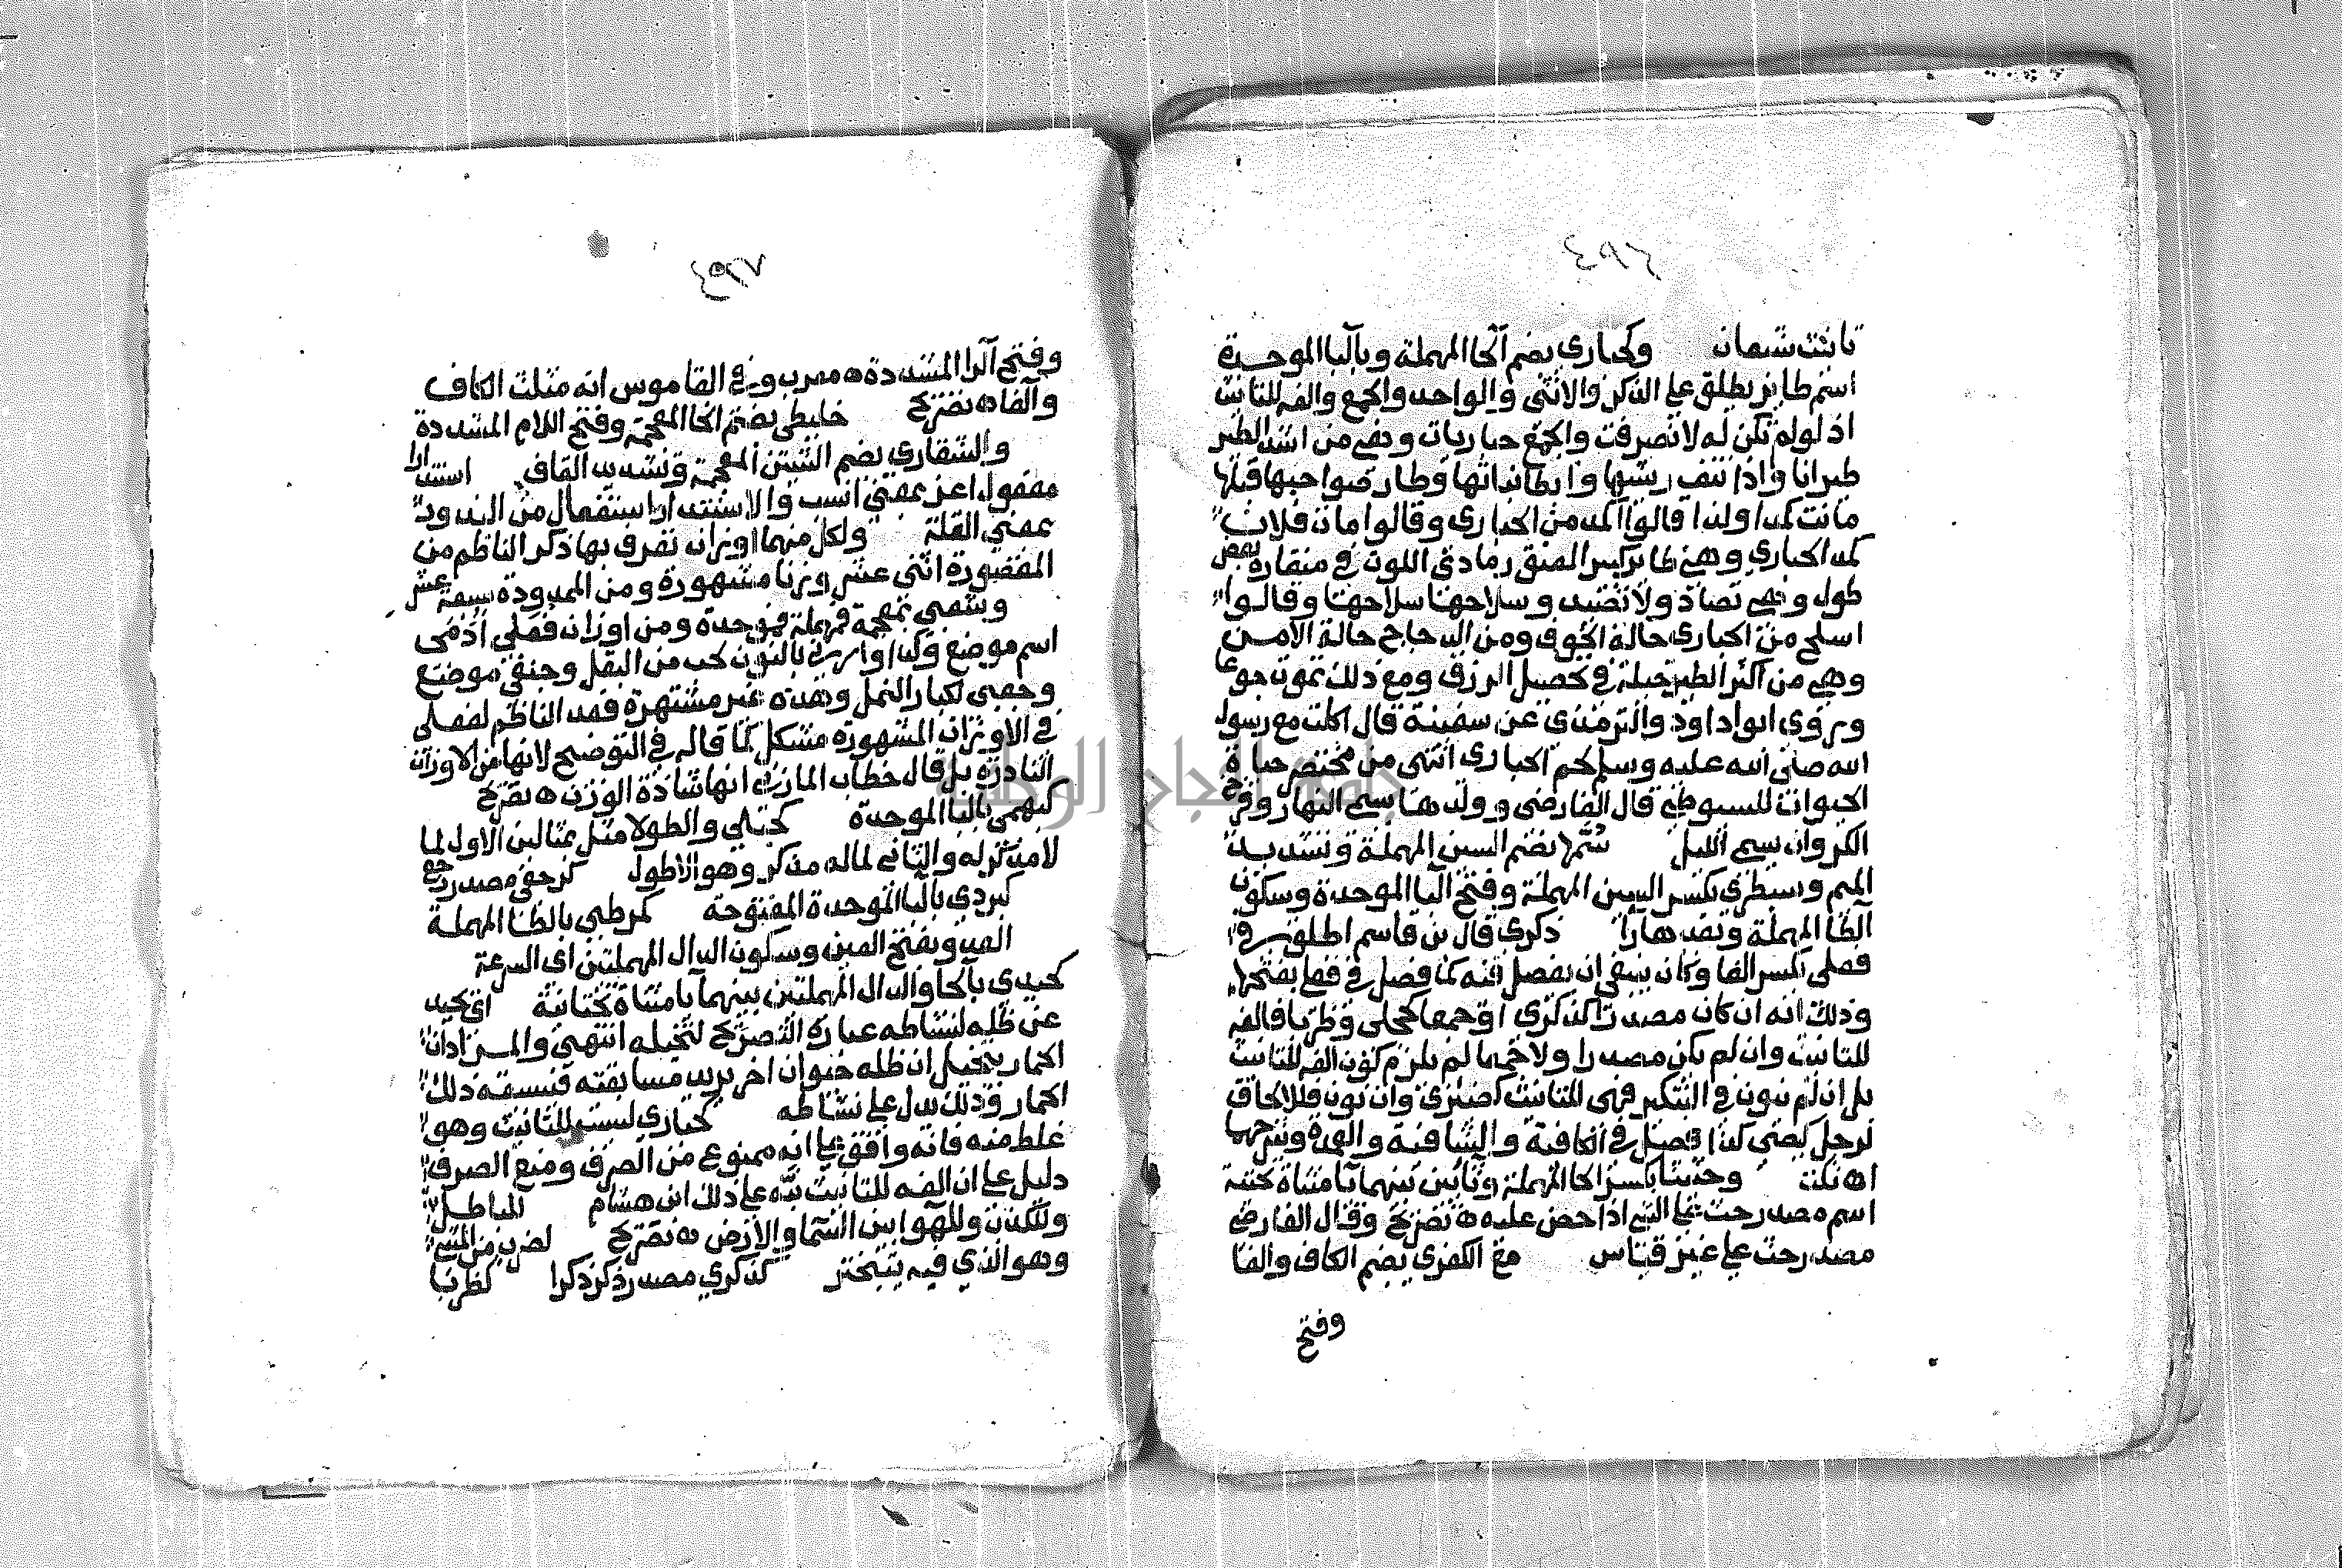 ٤٩٦
تانيث شبعان وكحباري بضم الحا المهملة وبالبا الموحدة
اسم طاير يطلق على الذكر والانثى والواحد والجمع والفه للتانيث
اذ لو لم تكن له لانصرفت والجمع حباريات وهي من اشد الطير
طيرانا واذا نتف ريشها وابطا نباتها وطار صواحبها قبلها
ماتت كمدا ولذا قالوا اكمد من الحباري وقالوا مات فلان
كمد الحباري وهي طاير كبير العنق رمادي اللون في منقاره بعض
طول وهي تصاد ولا تصيد وسلاحها سلاحها وقالوا
اسلح من الحباري حالة الخوف ومن الدجاج حالة الامن
وهي من اكثر الطير حيلة في تحصيل الرزق ومع ذلك تموت جوعا
وروى ابو داود والترمذي عن سفينة قال اكلت مع رسول
الله صلى الله عليه وسلم لحم الحباري انتهى من مختصر حياة
الحيوان للسيوطي قال الفارضي وولدها يسمى النهار وفرخ
الكروان يسمى الليل سُمَّها بضم السين المهملة وتشديد
الميم وسبطري بكسر السين المهملة وفتح البا الموحدة وسكون
الطا المهملة وبعدها را ذكري قال بن قاسم اطلق في
فعلى بكسر الفا وكان ينبغي ان يفصل فيه كما فصل في فعلى بفتحها
وذلك انه ان كان مصدرا كذكري او جمعا كحجلى وظربا فالفه
للتانيث وان لم يكن مصدرا ولا جمعا لم يلزم كون الفه للتانيث
بل ان لم ينون في التنكير فهي للتانيث كضئزي وان نون فللالحاق
لرجل كيصى كذا فصل في الكافية والشافية والعمدة وشرحها
اه نكت وحثيثا بكسر الحا المهملة وثائين بينهما يا مثناة تحتية
اسم مصدر حث على الشي اذا حض عليه ه تصريح وقال الفارضي
مصدر حث على غير قياس مع الكفري بضم الكاف والفا
وفتح
٤٩٧
وفتح الرا المشددة ه معرب وفي القاموس انه مثلث الكاف
والفا ه تصريح خليطى بضم الخا المعجمة وفتح اللام المشددة
والشقاري بضم الشين المعجمة وتشديد القاف استندارا
مفعول اعز بمعنى انسب والاستندار استفعال من الندور
بمعنى القلة ولكل منهما اوزان تعرف بها ذكر الناظم من
المقصورة اثنى عشر وزنا مشهورة ومن الممدودة سبعة عشر
وشعبى بمعجمة فمهملة فموحدة ومن اوزان فعلى ادمى
اسم موضع وكذا وارنى بالنون لحب من البقل وجنفى موضع
وجعبى لكبار النمل وهذه غير مشتهرة فعد الناظم لفعلى
في الاوزان المشهورة مشكل كما قاله في التوضيح لانها من الاوزان
النادرة بل قال خطاب المازني انها شاذة الوزن ه تصريح
كبهمى بالبا الموحدة كحبلي والطولا مثل بمثالين الاول لما
لا مذكر له والثاني لما له مذكر وهو الاطول كرجعى مصدر رجع
كبردي بالبا الموحدة المفتوحة كمرطى بالطا المهملة
العدو بفتح العين وسكون الدال المهملتين اى السرعة
كحيدى بالحا والدال المهملتين بينهما يا مثناة تحتانية اي يحيد
عن ظله لنشاطه عبارة التصريح لتخيله انتهى والمراد ان
الحمار يتخيل ان ظله حيوان اخر يريد مسابقته فيسبقه ذلك
الحمار وذلك يدل على نشاطه كحباري ليست للتانيث وهو
غلط منه فانه وافق على انه ممنوع من الصرف ومنع الصرف
دليل على ان الفه للتانيث نبّه على ذلك ابن هشام للباطل
وللكذب وللهوا بين السما والارض ه تصريح لضرب من المشي
وهو الذي فيه يتبختر كذكري مصدر ذكر ذكرا كظربا
جامعة النجاح الوطنية